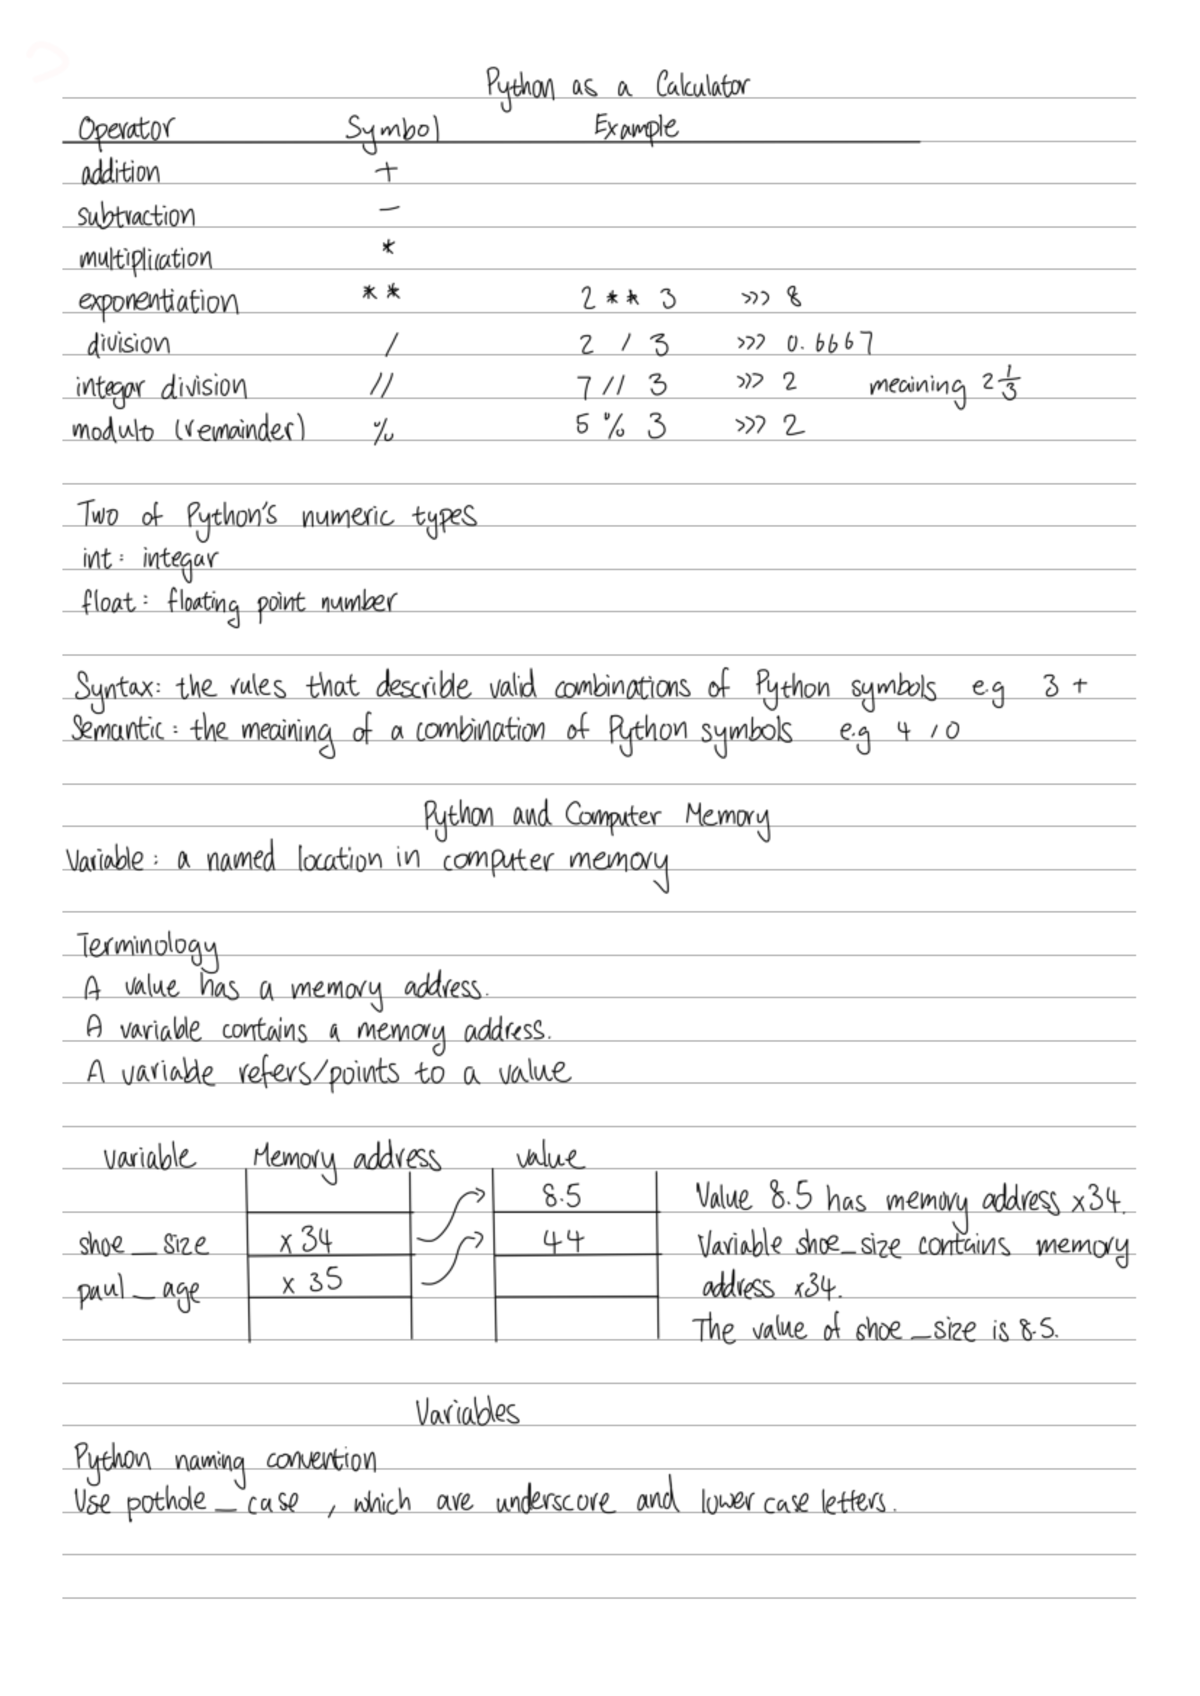 Python as a Calculator
Operator Symbol Example
addition +
subtraction −
multiplication *
exponentiation ** 2 ** 3 >>> 8
division / 2 / 3 >>> 0.6667
integar division // 7 // 3 >>> 2 meaining 2 1/3
modulo (remainder) % 5 % 3 >>> 2
Two of Python's numeric types
int: integar
float: floating point number
Syntax: the rules that describle valid combinations of Python symbols e.g 3 +
Semantic: the meaining of a combination of Python symbols e.g 4 / 0
Python and Computer Memory
Variable: a named location in computer memory
Terminology
A value has a memory address.
A variable contains a memory address.
A variable refers/points to a value
variable Memory address value
8.5 Value 8.5 has memory address x34.
shoe_size x34 44 Variable shoe_size contains memory
paul_age x 35 address x34.
The value of shoe_size is 8.5.
Variables
Python naming convention
Use pothole_case, which are underscore and lower case letters.